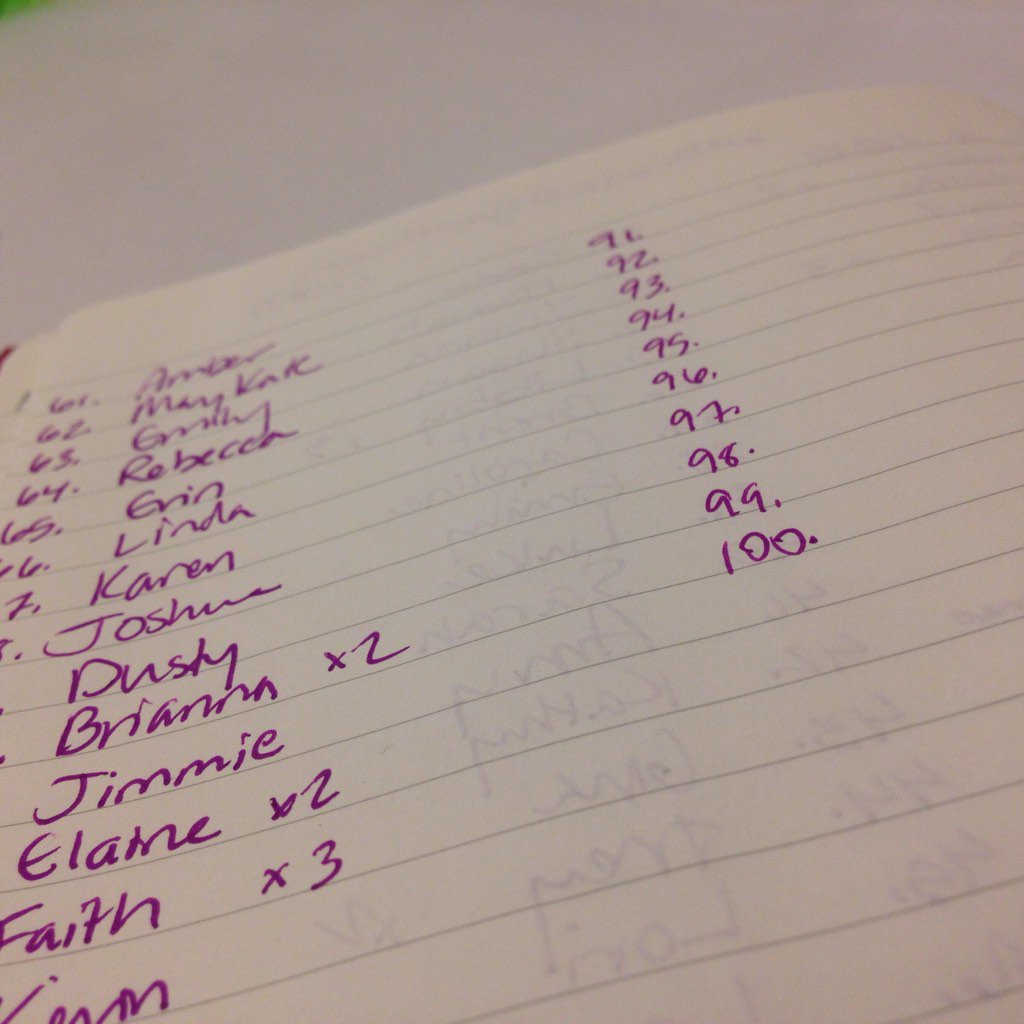 61. Amber
62. Mary Kate
63. Emily
64. Rebecca
65. Erin
66. Linda
7. Karen
8. Joshua
Dusty
Brianna x2
Jimmie
Elaine x2
Faith x3
91.
92.
93.
94.
95.
96.
97.
98.
99.
100.